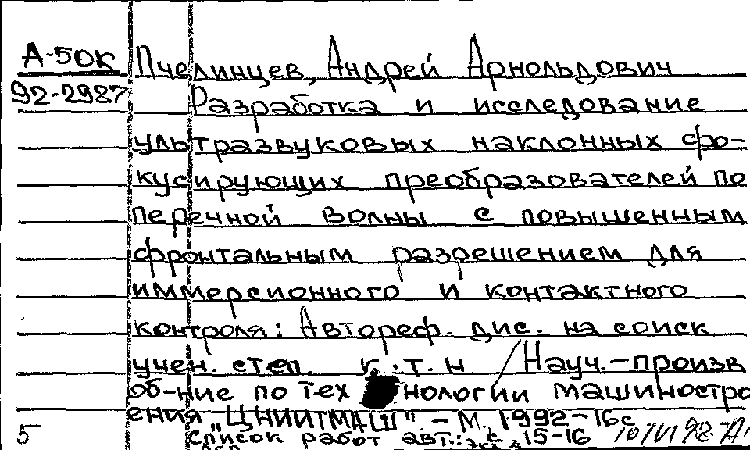 А-50к Пчелинцев, Андрей Арнольдович
92-2987 Разработка и исследование
ультразвуковых наклонных фо-
кусирующих преобразователей по
перечной волны с повышенным
фронтальным разрешением для
иммерсионного и контактного
контроля: Автореф. дис. на соиск
учен. степ. к.т.н / Науч.-произв
об-ние по тех нологии машиностро
ения "ЦНИИТМАШ". - М, 1992-16с
5 Список работ авт.: с 15-16